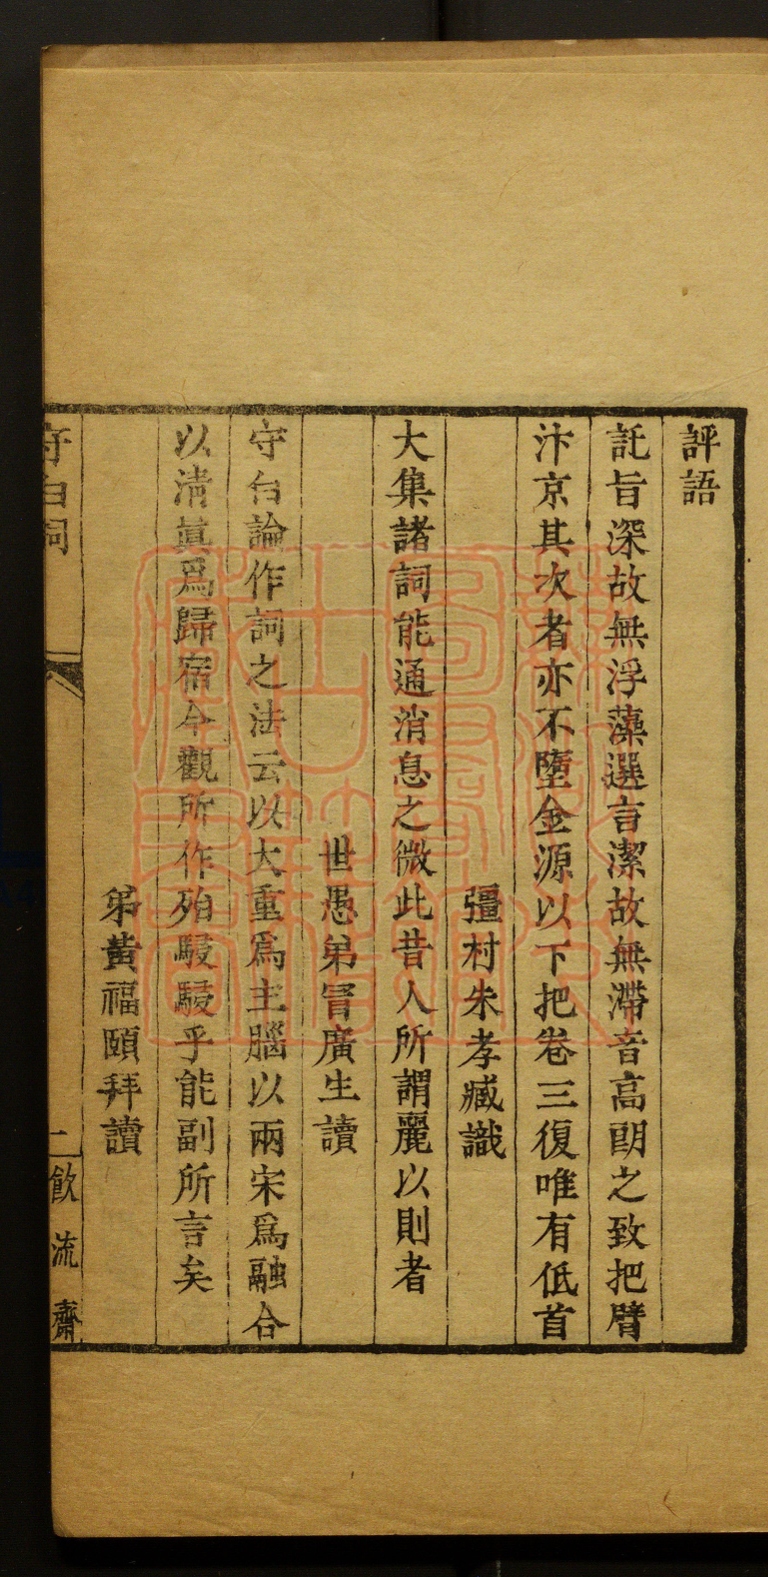 評語
託旨深故無浮藻選言潔故無滯音高朗之致把臂
汴京其次者亦不墮金源以下把卷三復唯有低首
彊村朱孝臧識
大集諸詞能通消息之微此昔人所謂麗以則者
世愚弟冒廣生讀
守白論作詞之法云以大重爲主腦以兩宋爲融合
以淸眞爲歸宿今觀所作殆駸駸乎能副所言矣
弟黃福頤拜讀
守白詞
二飮流齋